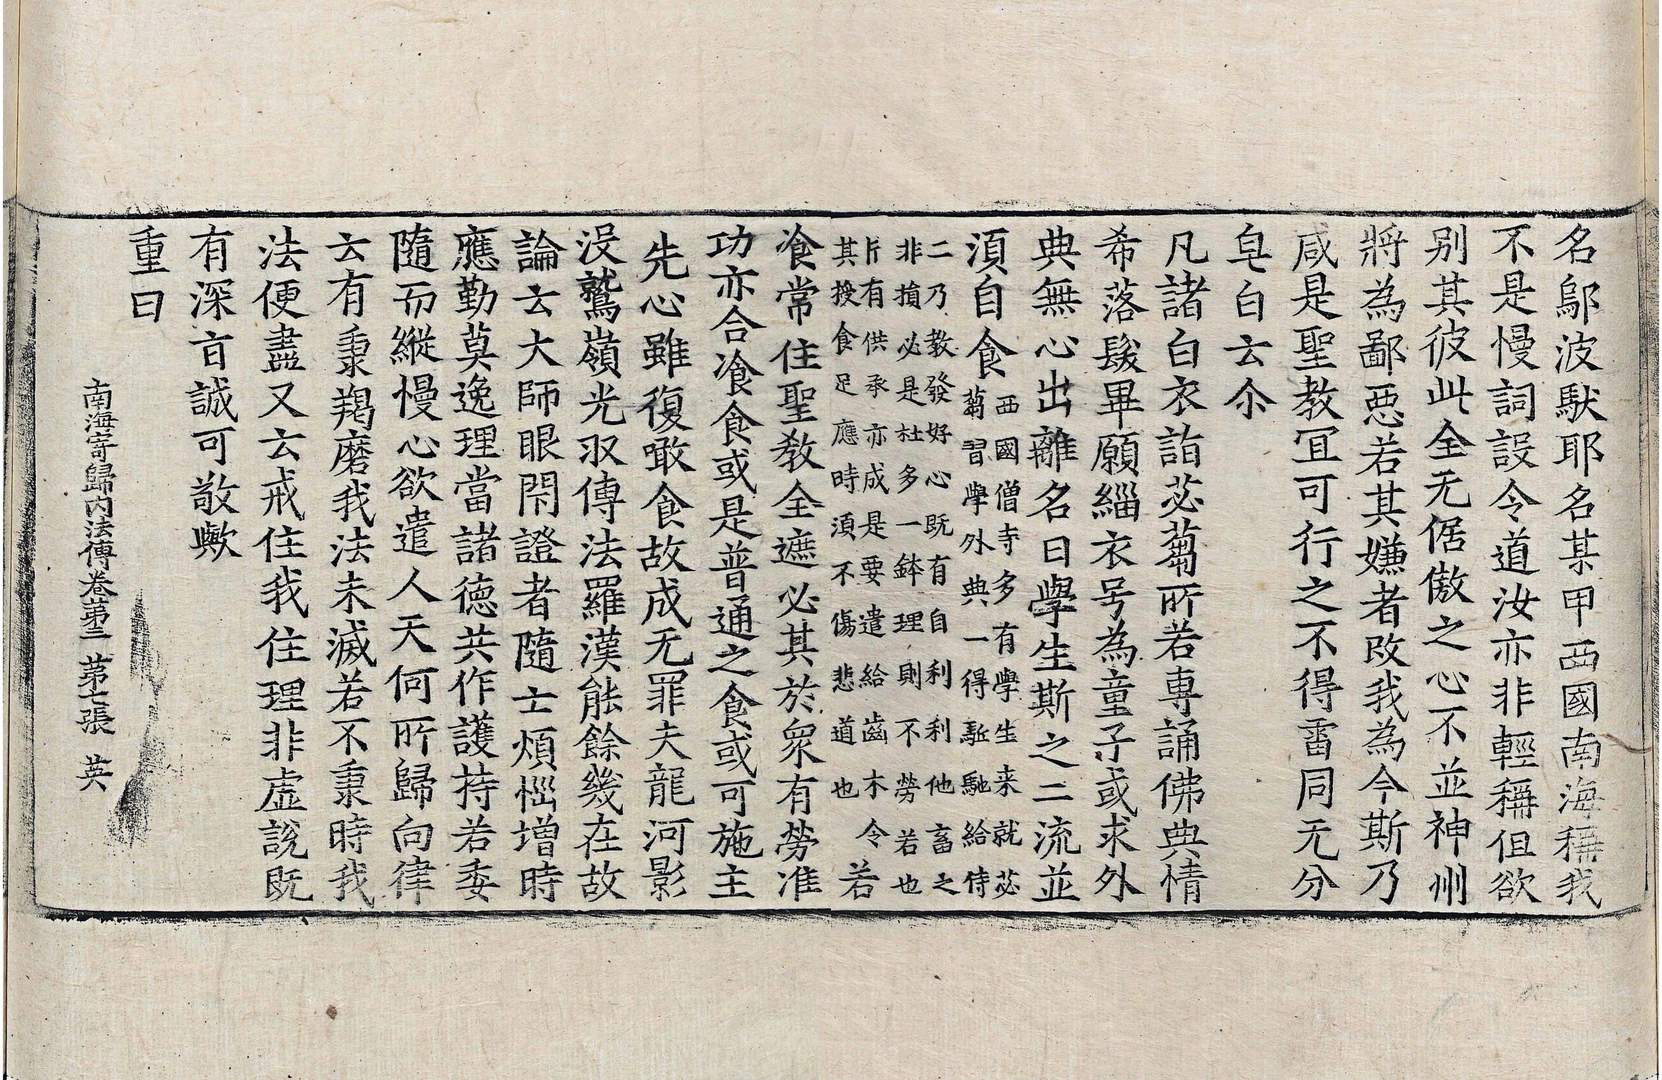 名鄔波馱耶名某甲西國南海稱我
不是慢詞設令道汝亦非輕稱伹欲
別其彼此全无倨傲之心不並神州
將為鄙惡若其嫌者改我為今斯乃
咸是聖教冝可行之不得雷同无分
皂白云尒
凡諸白衣詣苾蒭所若專誦佛典情
希落髮畢願緇衣号為童子或求外
典無心出離名曰學生斯之二流並
湏自食
西國僧寺多有學生来就苾
蒭習學外典一得駈馳給侍
二乃教發好心既有自利利他畜之
非損必是杜多一鉢理則不勞若也
片有供承亦成是要遣給齒木令
其授食足應時湏不傷悲道也
若
飡常住聖教全遮必其於眾有勞准
功亦合飡食或是普通之食或可施主
先心雖復噉食故成无罪夫龍河影
没鷲嶺光収傳法羅漢能餘幾在故
論云大師眼閇證者隨士煩惱增時
應勤莫逸理當諸德共作護持若委
隨而縱慢心欲遣人天何所歸向律
云有秉羯磨我法未滅若不秉時我
法便盡又云戒住我住理非虛說既
有深旨誠可敬歟
重曰
南海寄歸內法傳卷第三 第七張 英